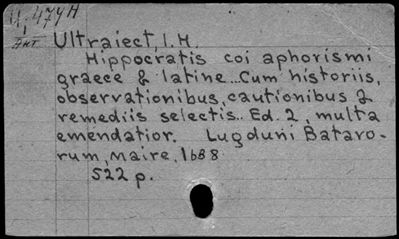 Ultraiect, I. H.
Hippocratis coi aphorismi
graece & latine... Cum historiis,
observationibus, cautionibus &
remediis selectis.. Ed. 2, multa
emendatior. Lugduni Batavo-
rum, Maire,
522 p.